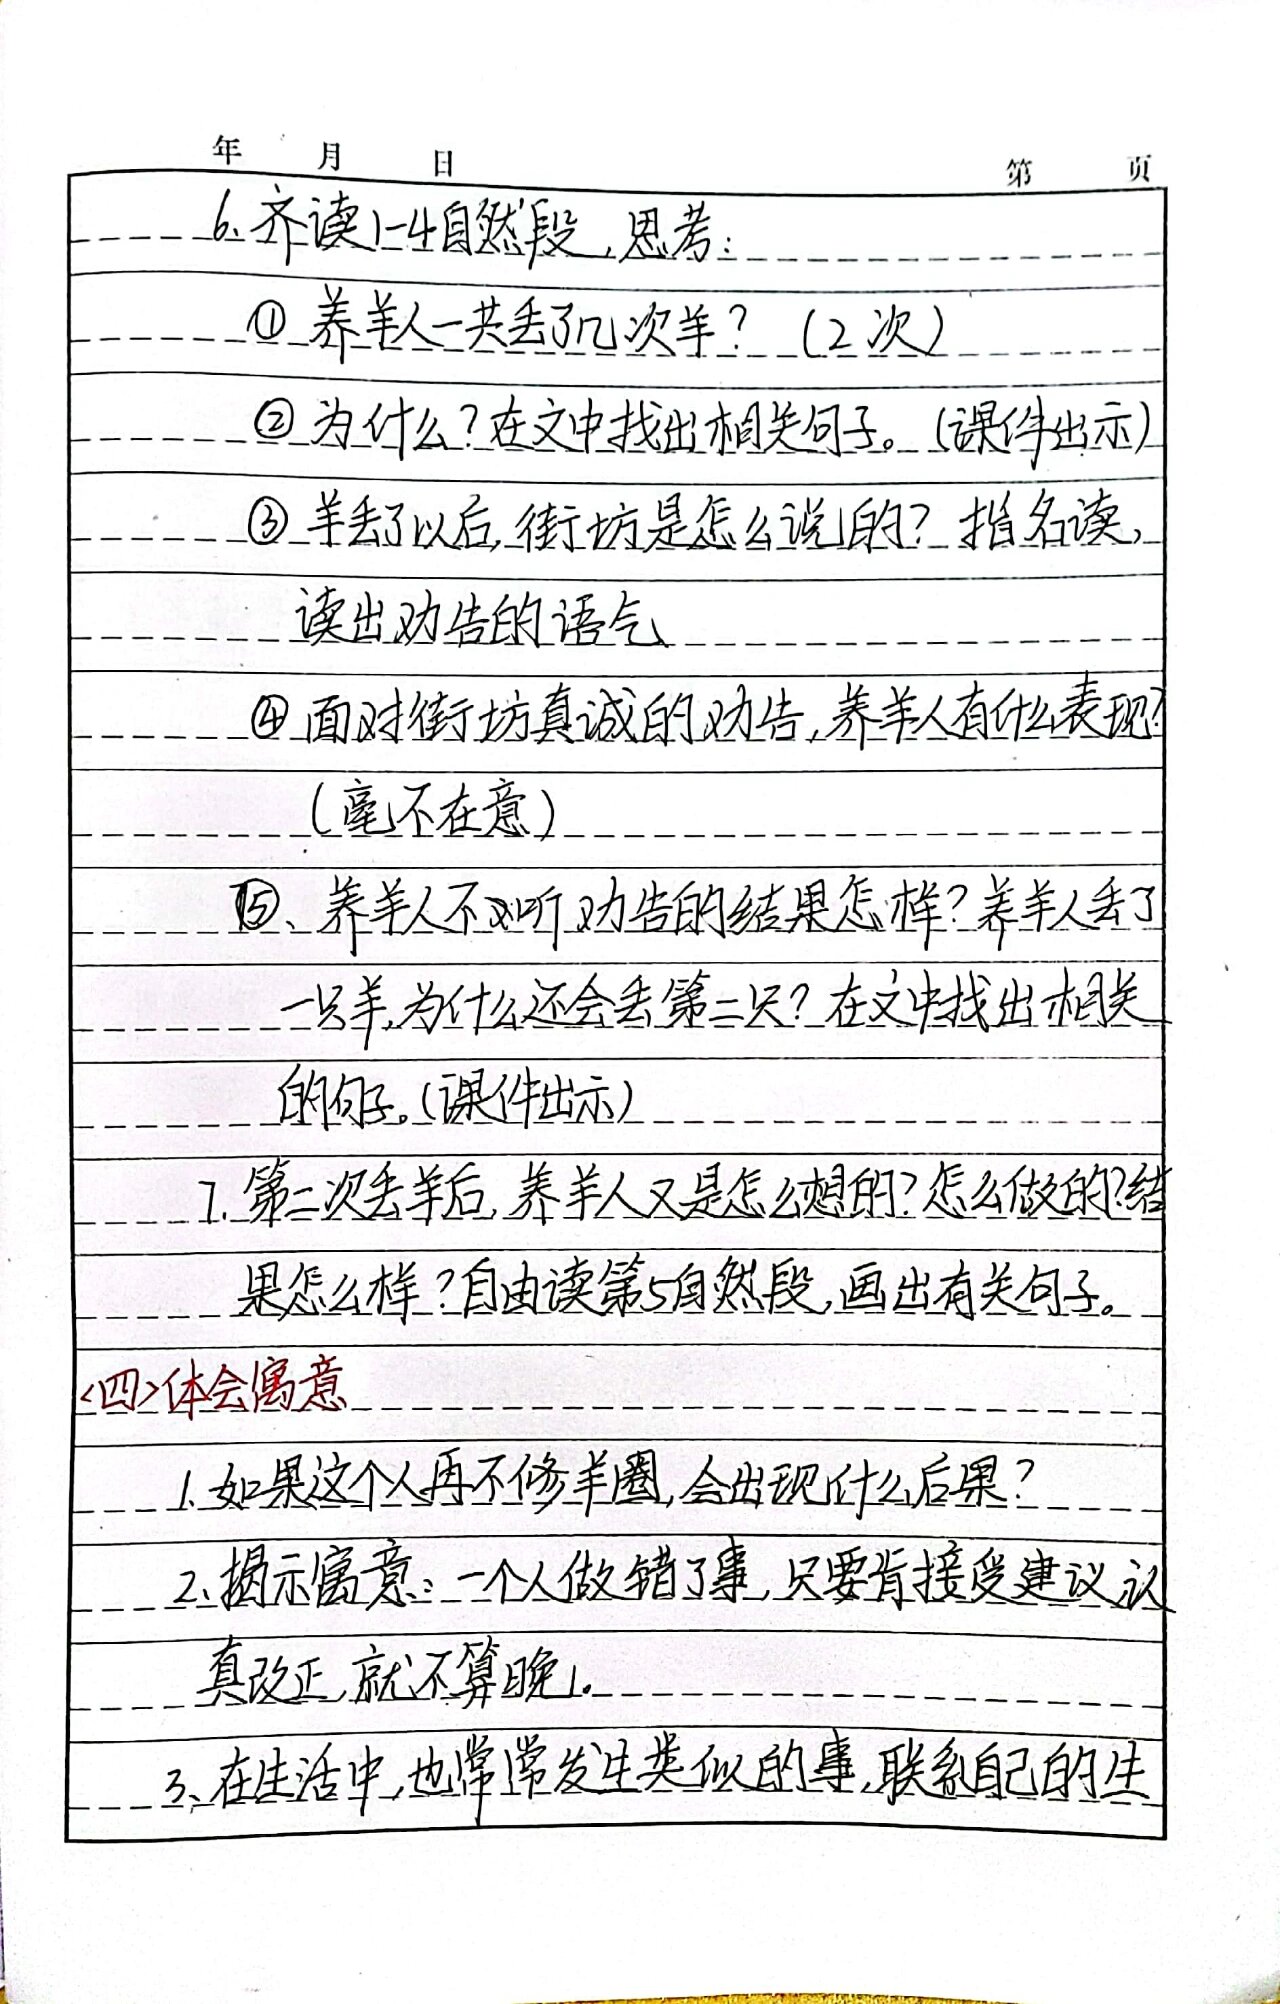 年 月 日 第 页
6、齐读1-4自然段，思考：
① 养羊人一共丢了几次羊？（2次）
② 为什么？在文中找出相关句子。（课件出示）
③ 羊丢了以后，街坊是怎么说的？指名读，
读出劝告的语气
④ 面对街坊真诚的劝告，养羊人有什么表现？
（毫不在意）
⑤、养羊人不听劝告的结果怎样？养羊人丢了
一只羊，为什么还会丢第二只？在文中找出相关
的句子。（课件出示）
7. 第二次丢羊后，养羊人又是怎么想的？怎么做的？结
果怎么样？自由读第5自然段，画出有关句子。
<四>体会寓意
1. 如果这个人再不修羊圈，会出现什么后果？
2、揭示寓意：一个人做错了事，只要肯接受建议认
真改正，就不算晚。
3、在生活中，也常常发生类似的事，联系自己的生